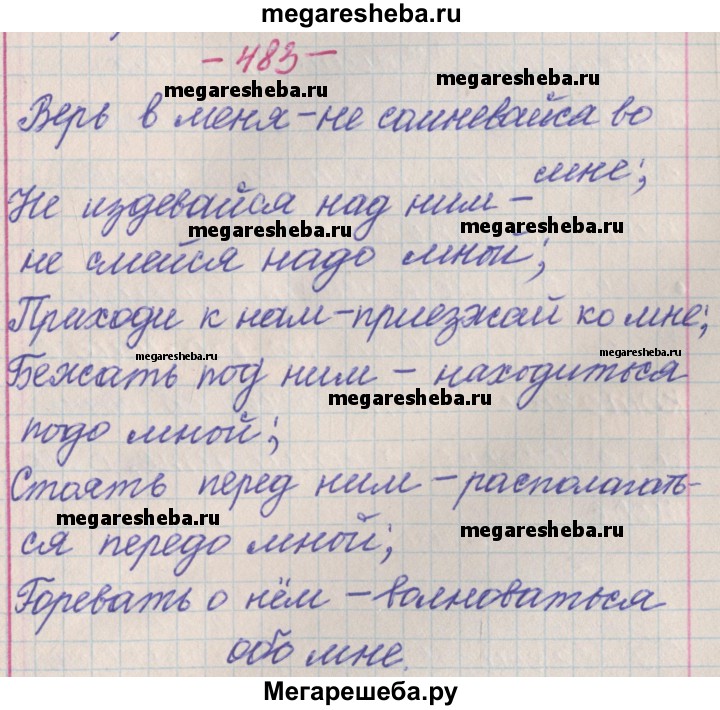 megaresheba.ru
- 483 -
megaresheba.ru
megaresheba.ru
Верь в меня - не сомневайся во
мне;
Не издевайся над ним -
megaresheba.ru
megaresheba.ru
не смейся надо мной;
Приходи к нам - приезжай ко мне;
megaresheba.ru
megaresheba.ru
Бежать под ним - находиться
megaresheba.ru
подо мной;
Стоять перед ним - располагать-
megaresheba.ru
megaresheba.ru
ся передо мной;
Горевать о нём - волноваться
обо мне.
Мегарешеба.ру